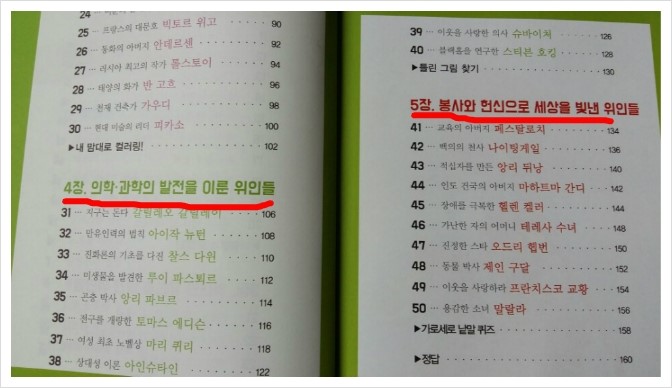 24
25 ··· 프랑스의 대문호 빅토르 위고 ········ 90
26 ··· 동화의 아버지 안데르센 ········ 92
27 ··· 러시아 최고의 작가 톨스토이 ········ 94
28 ··· 태양의 화가 반 고흐 ········ 96
29 ··· 천재 건축가 가우디 ········ 98
30 ··· 현대 미술의 리더 피카소 ········ 100
▶내 맘대로 컬러링! ········ 102
4장. 의학·과학의 발전을 이룬 위인들
31 ··· 지구는 돈다 갈릴레오 갈릴레이 ········ 106
32 ··· 만유인력의 법칙 아이작 뉴턴 ········ 108
33 ··· 진화론의 기초를 다진 찰스 다윈 ········ 110
34 ··· 미생물을 발견한 루이 파스퇴르 ········ 112
35 ··· 곤충 박사 앙리 파브르 ········ 114
36 ··· 전구를 개량한 토마스 에디슨 ········ 116
37 ··· 여성 최초 노벨상 마리 퀴리 ········ 118
38 ··· 상대성 이론 아인슈타인 ········ 122
39 ··· 이웃을 사랑한 의사 슈바이처 ········ 126
40 ··· 블랙홀을 연구한 스티븐 호킹 ········ 128
▶틀린 그림 찾기 ········ 130
5장. 봉사와 헌신으로 세상을 빛낸 위인들
41 ··· 교육의 아버지 페스탈로치 ········ 134
42 ··· 백의의 천사 나이팅게일 ········ 136
43 ··· 적십자를 만든 앙리 뒤낭 ········ 140
44 ··· 인도 건국의 아버지 마하트마 간디 ········ 142
45 ··· 장애를 극복한 헬렌 켈러 ········ 144
46 ··· 가난한 자의 어머니 테레사 수녀 ········ 148
47 ··· 진정한 스타 오드리 헵번 ········ 150
48 ··· 동물 박사 제인 구달 ········ 152
49 ··· 이웃을 사랑하라 프란치스코 교황 ········ 154
50 ··· 용감한 소녀 말랄라 ········ 156
▶가로세로 낱말 퀴즈 ········ 158
▶정답 ········ 160